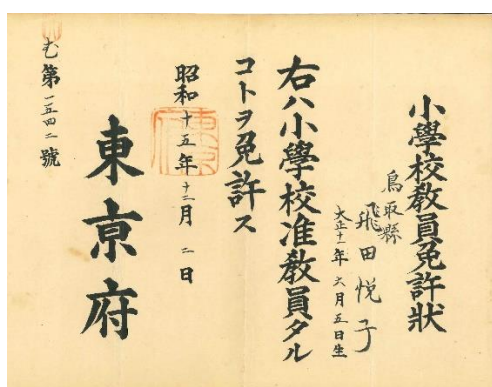 小學校教員免許狀
鳥取縣
飛田悦子
大正十一年六月五日生
右ハ小學校准教員タル
コトヲ免許ス
昭和十五年十二月二日
東京府
む第一五四二號